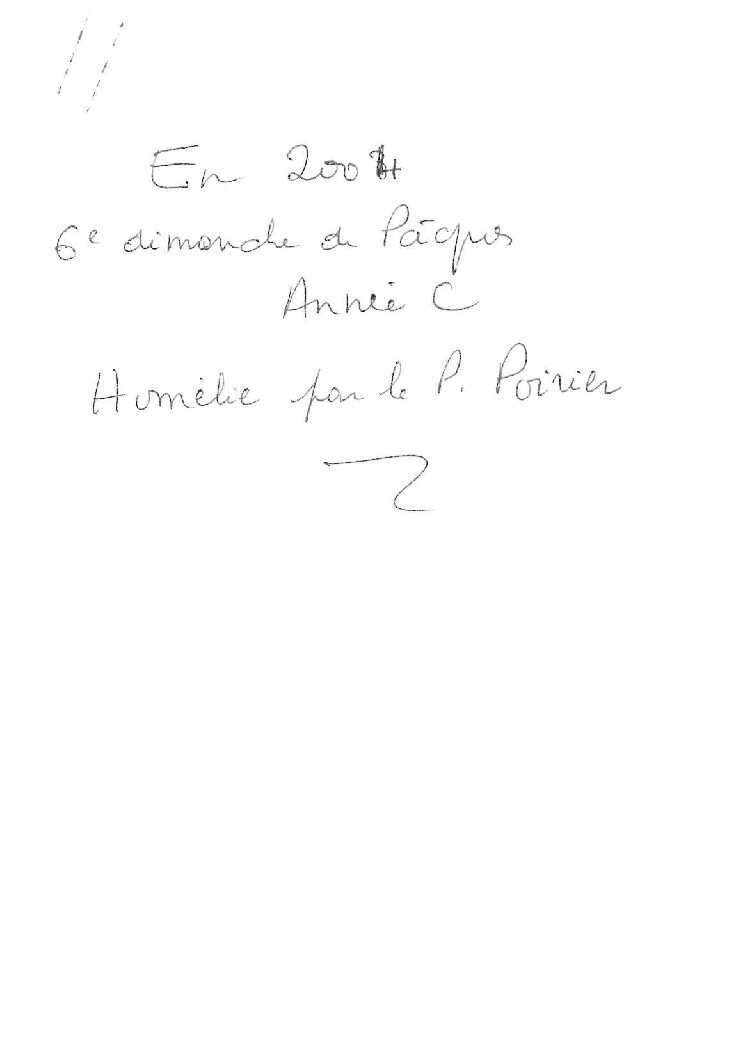 En 2004
6e dimanche de Pâques
Année C
Homélie par le P. Poirier